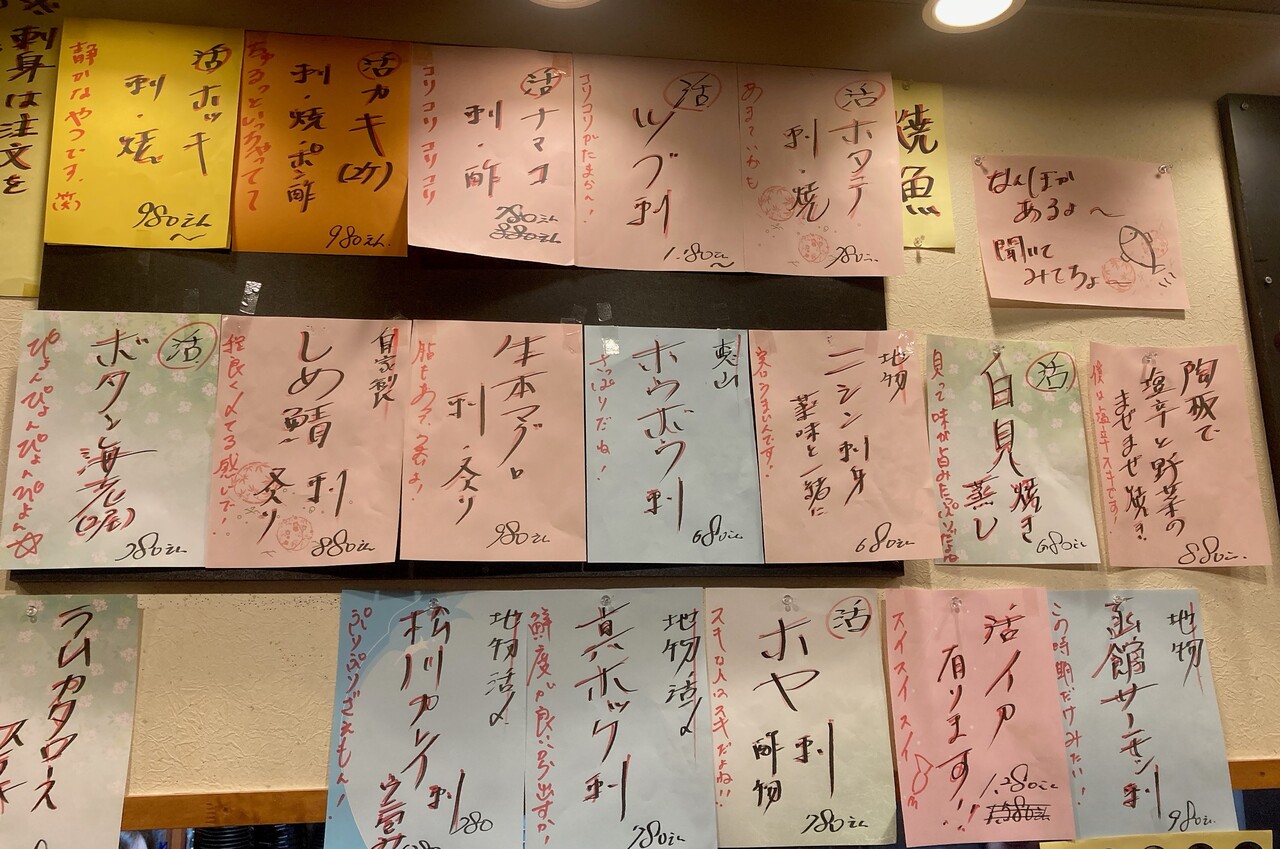 刺身は注文を
活ホッキ
刺・焼
静かなやつです。(笑)
980えん〜
活カキ
刺・焼・ポン酢
ちゅるっといっちゃってて
980えん
活ナマコ
刺・酢
コリコリコリコリ
780えん
880えん
活
ツブ刺
コリコリがたまらん〜!
1.180えん〜
活ホタテ
刺・焼
780えん
焼魚
なんぼか
あるよ〜
聞いて
みてちょ
活
ボタン海老
ぴょんぴょんぴょんぴょん☆
自家製
しめ鯖刺
炙り
程良く〆てる感じで!
880えん
生本マグロ
刺・炙り
980えん
恵山
ホウボウ刺
さっぱりだね!
680えん
地物
ニシン刺身
薬味と一緒に
実はうまいんです!
680えん
活
白貝焼き
蒸し
680えん
陶板で
塩辛と野菜の
まぜまぜ焼き
僕は塩辛スキです!
880えん
ラムカタロース
地物活〆
松川カレイ刺
ぷりぷりざえもん!
地物活〆
真ホッケ刺
鮮度が良いから出すか!
780えん
活
ホヤ刺
酢物
スキな人はスキだよね!!
780えん
活イカ
有ります!!
スイスイスイ
地物
函館サーモン刺
この時期だけみたい!
980えん